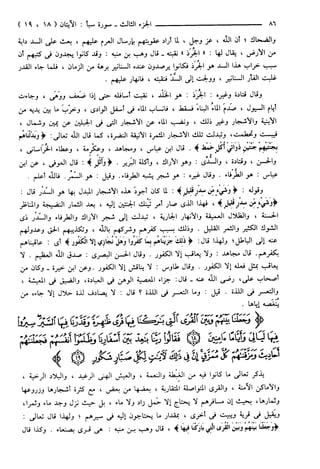 ٨٦ الجزء الثالث - سورة سبأ : الآيتان ( ١٨ ، ١٩ )
والضحاك ؛ أن الله ، عز وجل ، لما أراد عقوبتهم بإرسال العرم عليهم ، بعث على السد دابة
من الأرض ، يقال لها : « الجُرَذ » نقبته - قال وهب بن منبه : وقد كانوا يجدون في كتبهم أن
سبب خراب هذا السد هو الجُرَذ فكانوا يرصدون عنده السنانير برهة من الزمان ، فلما جاء القدر
غلبت الفأر السنانير ، وولجت إلى السدّ فنقبته ، فانهار عليهم .
وقال قتادة وغيره : الجُرَذ : هو الخَلْد ، نقبت أسافله حتى إذا ضعُف ووَهَى ، وجاءت
أيام السيول ، صَدمَ الماءُ البناءَ فسقط ، فانساب الماء في أسفل الوادي ، وخرّبَ ما بين يديه من
الأبنية والأشجار وغير ذلك ، ونضب الماء عن الأشجار التي في الجبلين عن يمين وشمال ،
فيبست وتحطمت ، وتبدلت تلك الأشجار المثمرة الأنيقة النضرة ، كما قال الله تعالى : ﴿ وَبَدَّلْنَاهُم
بِجَنَّتَيْهِمْ جَنَّتَيْنِ ذَوَاتَىْ أُكُلٍ خَمْطٍ ﴾ . قال ابن عباس ، ومجاهد ، وعكرمة ، وعطاء الخُراساني ،
والحسن ، وقتادة ، والسُّدي : وهو الأراك ، وأكلة البَرير . ﴿ وَأَثْلٍ ﴾ : قال العوفي ، عن ابن
عباس : هو الطَّرفاء . وقال غيره : هو شجر يشبه الطرفاء . وقيل : هو السَّمُر . فالله أعلم .
وقوله : ﴿ وَشَىْءٍ مِّن سِدْرٍ قَلِيلٍ ﴾ : لما كان أجودَ هذه الأشجار المبدل بها هو السدْر قال :
﴿ وَشَىْءٍ مِّن سِدْرٍ قَلِيلٍ ﴾ ، فهذا الذي صار أمر تَيْنك الجنتين إليه ، بعد الثمار النضيجة والمناظر
الحسنة ، والظلال العميقة والأنهار الجارية ، تبدلت إلى شجر الأراك والطرفاء والسدْر ذي
الشوك الكثير والثمر القليل . وذلك بسبب كفرهم وشركهم بالله ، وتكذيبهم الحق وعدولهم
عنه إلى الباطل؛ ولهذا قال: ﴿ ذَٰلِكَ جَزَيْنَاهُم بِمَا كَفَرُوا وَهَلْ نُجَازِى إِلَّا الْكَفُورَ ﴾ أي : عاقبناهم
بكفرهم . قال مجاهد : ولا يعاقب إلا الكفور . وقال الحسن البصري : صدق الله العظيم . لا
يعاقب بمثل فعله إلا الكفور . وقال طاوس : لا يناقش إلا الكفور . وعن ابن خيرة - وكان من
أصحاب علي، رضي الله عنه - قال : جزاء المعصية الوهن في العبادة ، والضيق في المعيشة ،
والتعسر في اللذة . قيل : وما التعسر في اللذة ؟ قال : لا يصادف لذة حلال إلا جاءه من
يُنَغصه إياها .
يذكر تعالى ما كانوا فيه من الغِبْطة والنعمة ، والعيش الهني الرغيد ، والبلاد الرخية ،
والأماكن الآمنة ، والقرى المتواصلة المتقاربة ، بعضها من بعض ، مع كثرة أشجارها وزروعها
وثمارها، بحيث إن مسافرهم لا يحتاج إلا حَمل زاد ولا ماء ، بل حيث نزل وجد ماء وثمرا،
ويَقيل في قرية ويبيت في أخرى ، بمقدار ما يحتاجون إليه في سيرهم ؛ ولهذا قال تعالى :
﴿ وَجَعَلْنَا بَيْنَهُمْ وَبَيْنَ الْقُرَى الَّتِى بَارَكْنَا فِيهَا ﴾ ، قال وهب بن منبه : هي قرى بصنعاء . وكذا قال